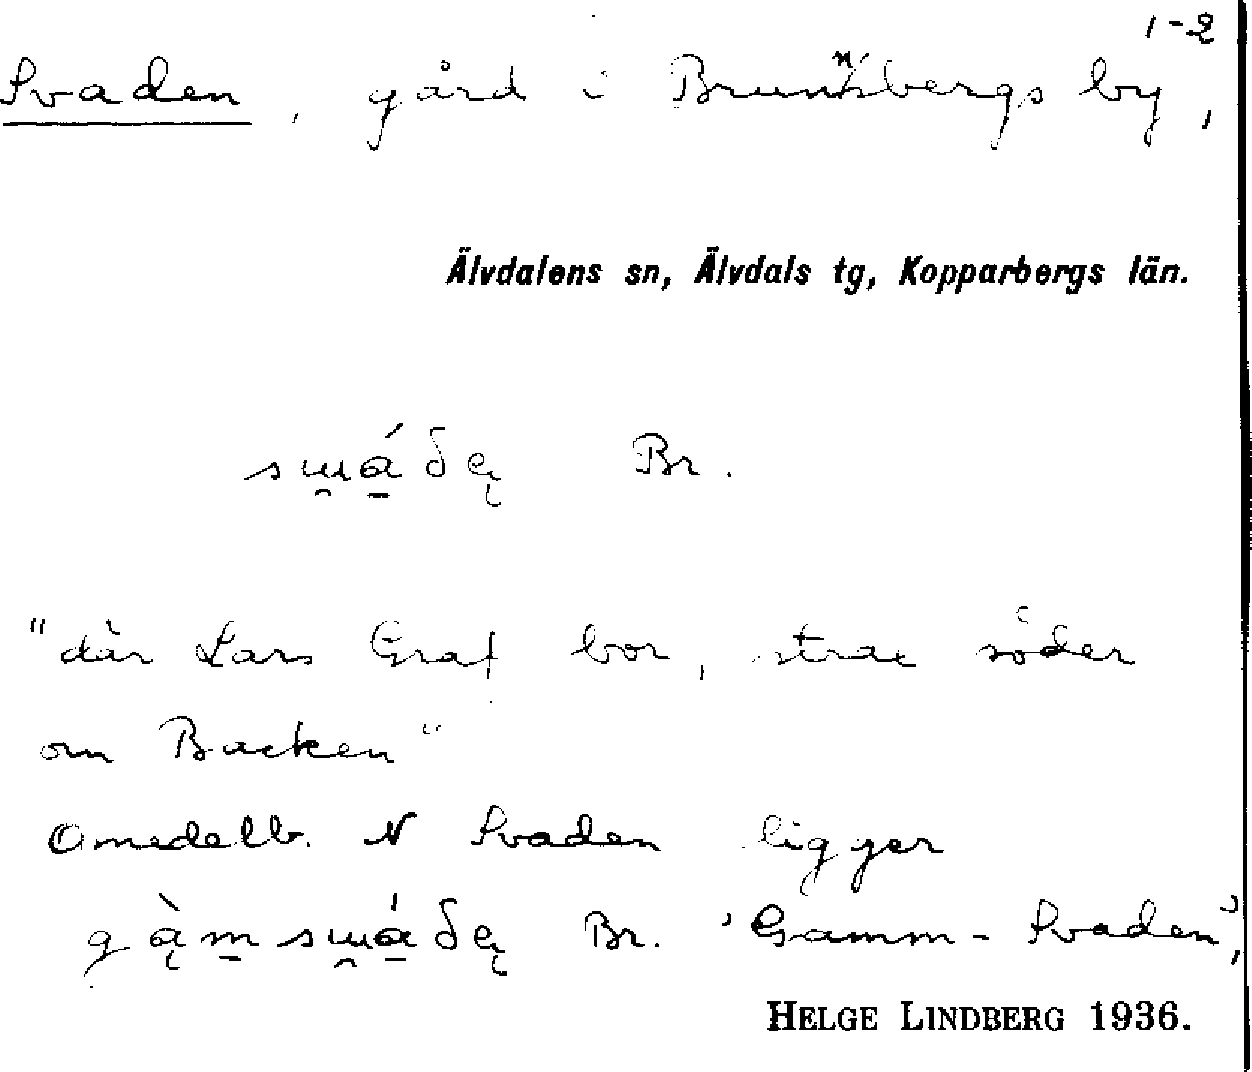 1-2
Svaden, gård i Brunnsbergs by,
Älvdalens sn, Älvdals tg, Kopparbergs län.
Br.
"där Lars Graf bor, strax söder
om Backen"
Omedelb. N Svaden ligger
Br. 'Gamm-Svaden',
HELGE LINDBERG 1936.